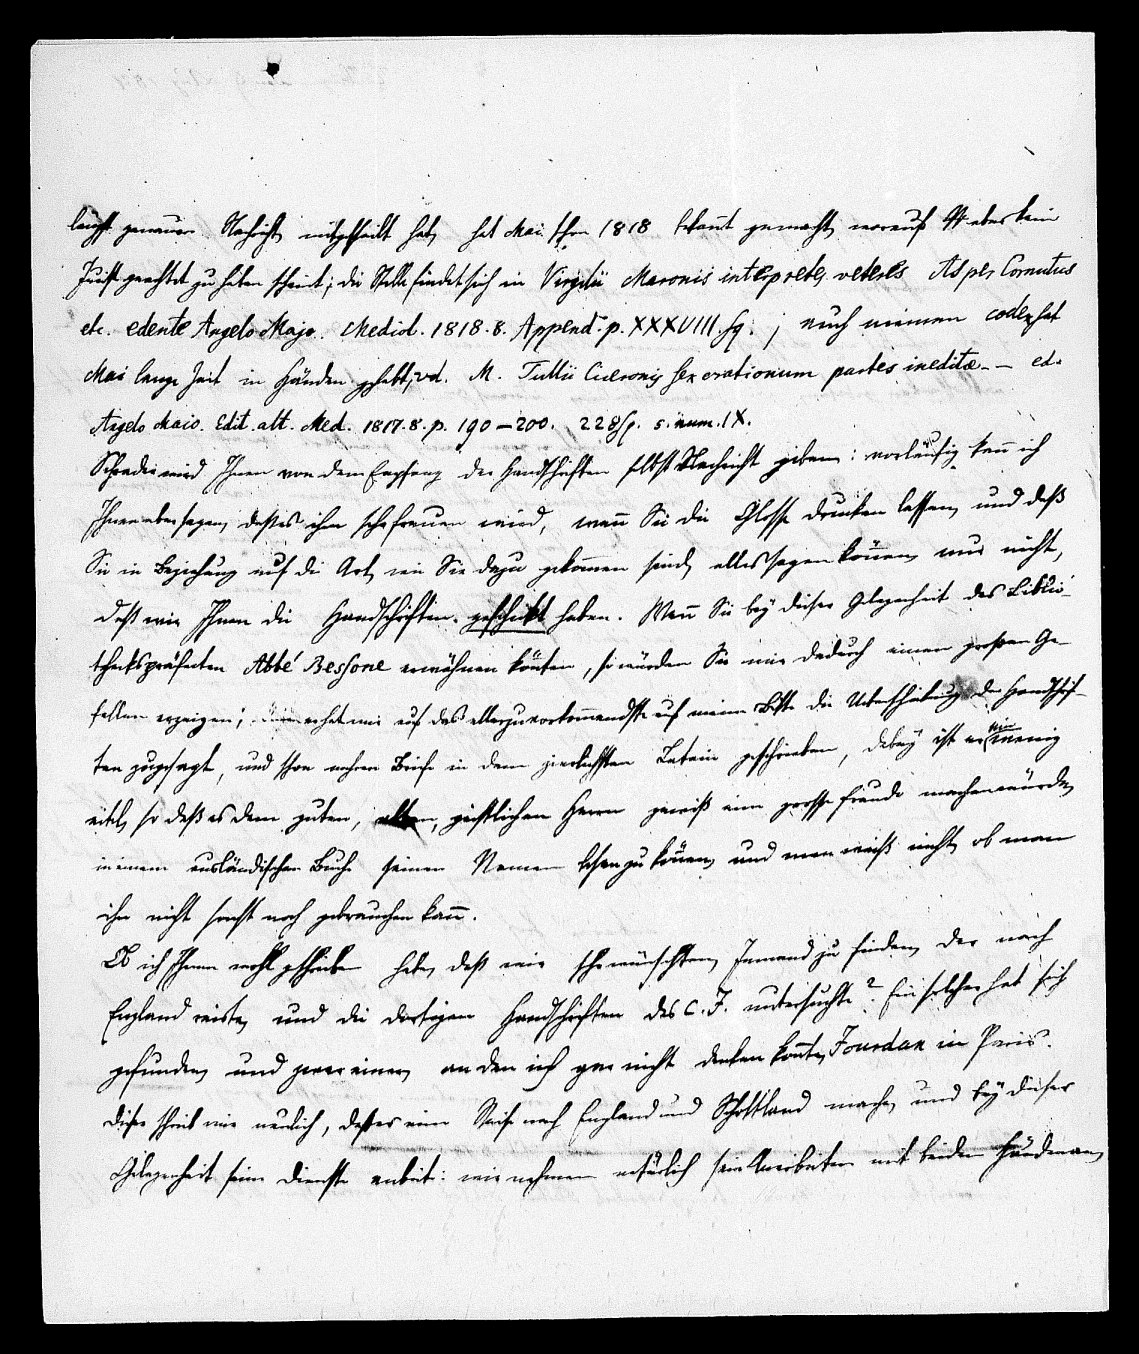 längst genauere Nachricht mitgetheilt hat, hat Mai schon 1818 bekannt gemacht, worauf aber kein
Jurist geachtet zu haben scheint; die Stelle findet sich in Virgilii Maronis interpretes veteres Asper Cornutus
etc. edente Angelo Majo. Mediol. 1818. 8. Append. p. XXXVIII. sq.; auch meinen codex hat
Mai lange Zeit in Händen gehabt, vd. M. Tullii Ciceronis sex orationum partes ineditæ. – – ed.
Angelo Maio. Edit. alt. Med. 1817. 8. p. 190–200. 228 sq. s. num. IX.
Schrader wird Ihnen von dem Empfang der Handschriften selbst Nachricht geben: vorläufig kann ich
Ihnen aber sagen, daß es ihm sehr freuen wird, wenn Sie die Glosse drucken lassen, und daß
Sie in Beziehung auf die Art, wie Sie dazu gekommen sind, alles sagen können, nur nicht,
daß wir Ihnen die Handschriften geschickt haben. Wenn Sie bey dieser Gelegenheit des Biblio-
thekspräfecten Abbé Bessone erwähnen könnten, so würden Sie mir dadurch einen großen Ge-
fallen erzeigen; er hat mir auf das allerzuvorkommendste auf meine Bitte die Ueberschickung der Handschrif-
ten zugesagt, und schon mehrere Briefe in dem zierlichsten Latein geschrieben, dabey ist er ein wenig
eitel, so daß es dem guten, alten, geistlichen Herrn gewiß eine große Freude machen würde,
in einem ausländischen Buche seinen Namen lesen zu können, und man weiß nicht, ob man
ihn nicht sonst noch gebrauchen kann.
Ob ich Ihnen wohl geschrieben habe, daß wir sehr wünschten, Jemand zu finden, der nach
England reiste, und die dortigen Handschriften des C. J. untersuchte? Ein solcher hat sich
gefunden, und zwar einer, an den ich gar nicht denken konnte, Jourdan in Paris.
Dieser schrieb mir neulich, daß er eine Reise nach England und Schottland mache, und bey dieser
Gelegenheit seine Dienste anbiete: wir nehmen natürlich sein Anerbieten mit beiden Händen an,